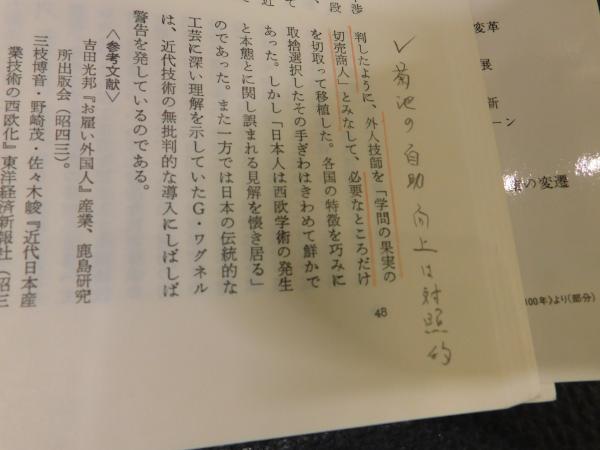 ✓ 菊池の自助向上は対照的
渉
段
判したように、外人技師を「学問の果実の
切売商人」とみなして、必要なところだけ
を切取って移植した。各国の特徴を巧みに
取捨選択したその手ぎわはきわめて鮮かで
あった。しかし「日本人は西欧学術の発生
と本態とに関し誤まれる見解を懐き居る」
のであった。また一方では日本の伝統的な
工芸に深い理解を示していたG・ワグネル
は、近代技術の無批判的な導入にしばしば
警告を発しているのである。
〈参考文献〉
吉田光邦『お雇い外国人』産業、鹿島研究
所出版会（昭四三）。
三枝博音・野崎茂・佐々木峻『近代日本産
業技術の西欧化』東洋経済新報社（昭三
48
変革
展
新
ーン
の変遷
100年》より（部分）